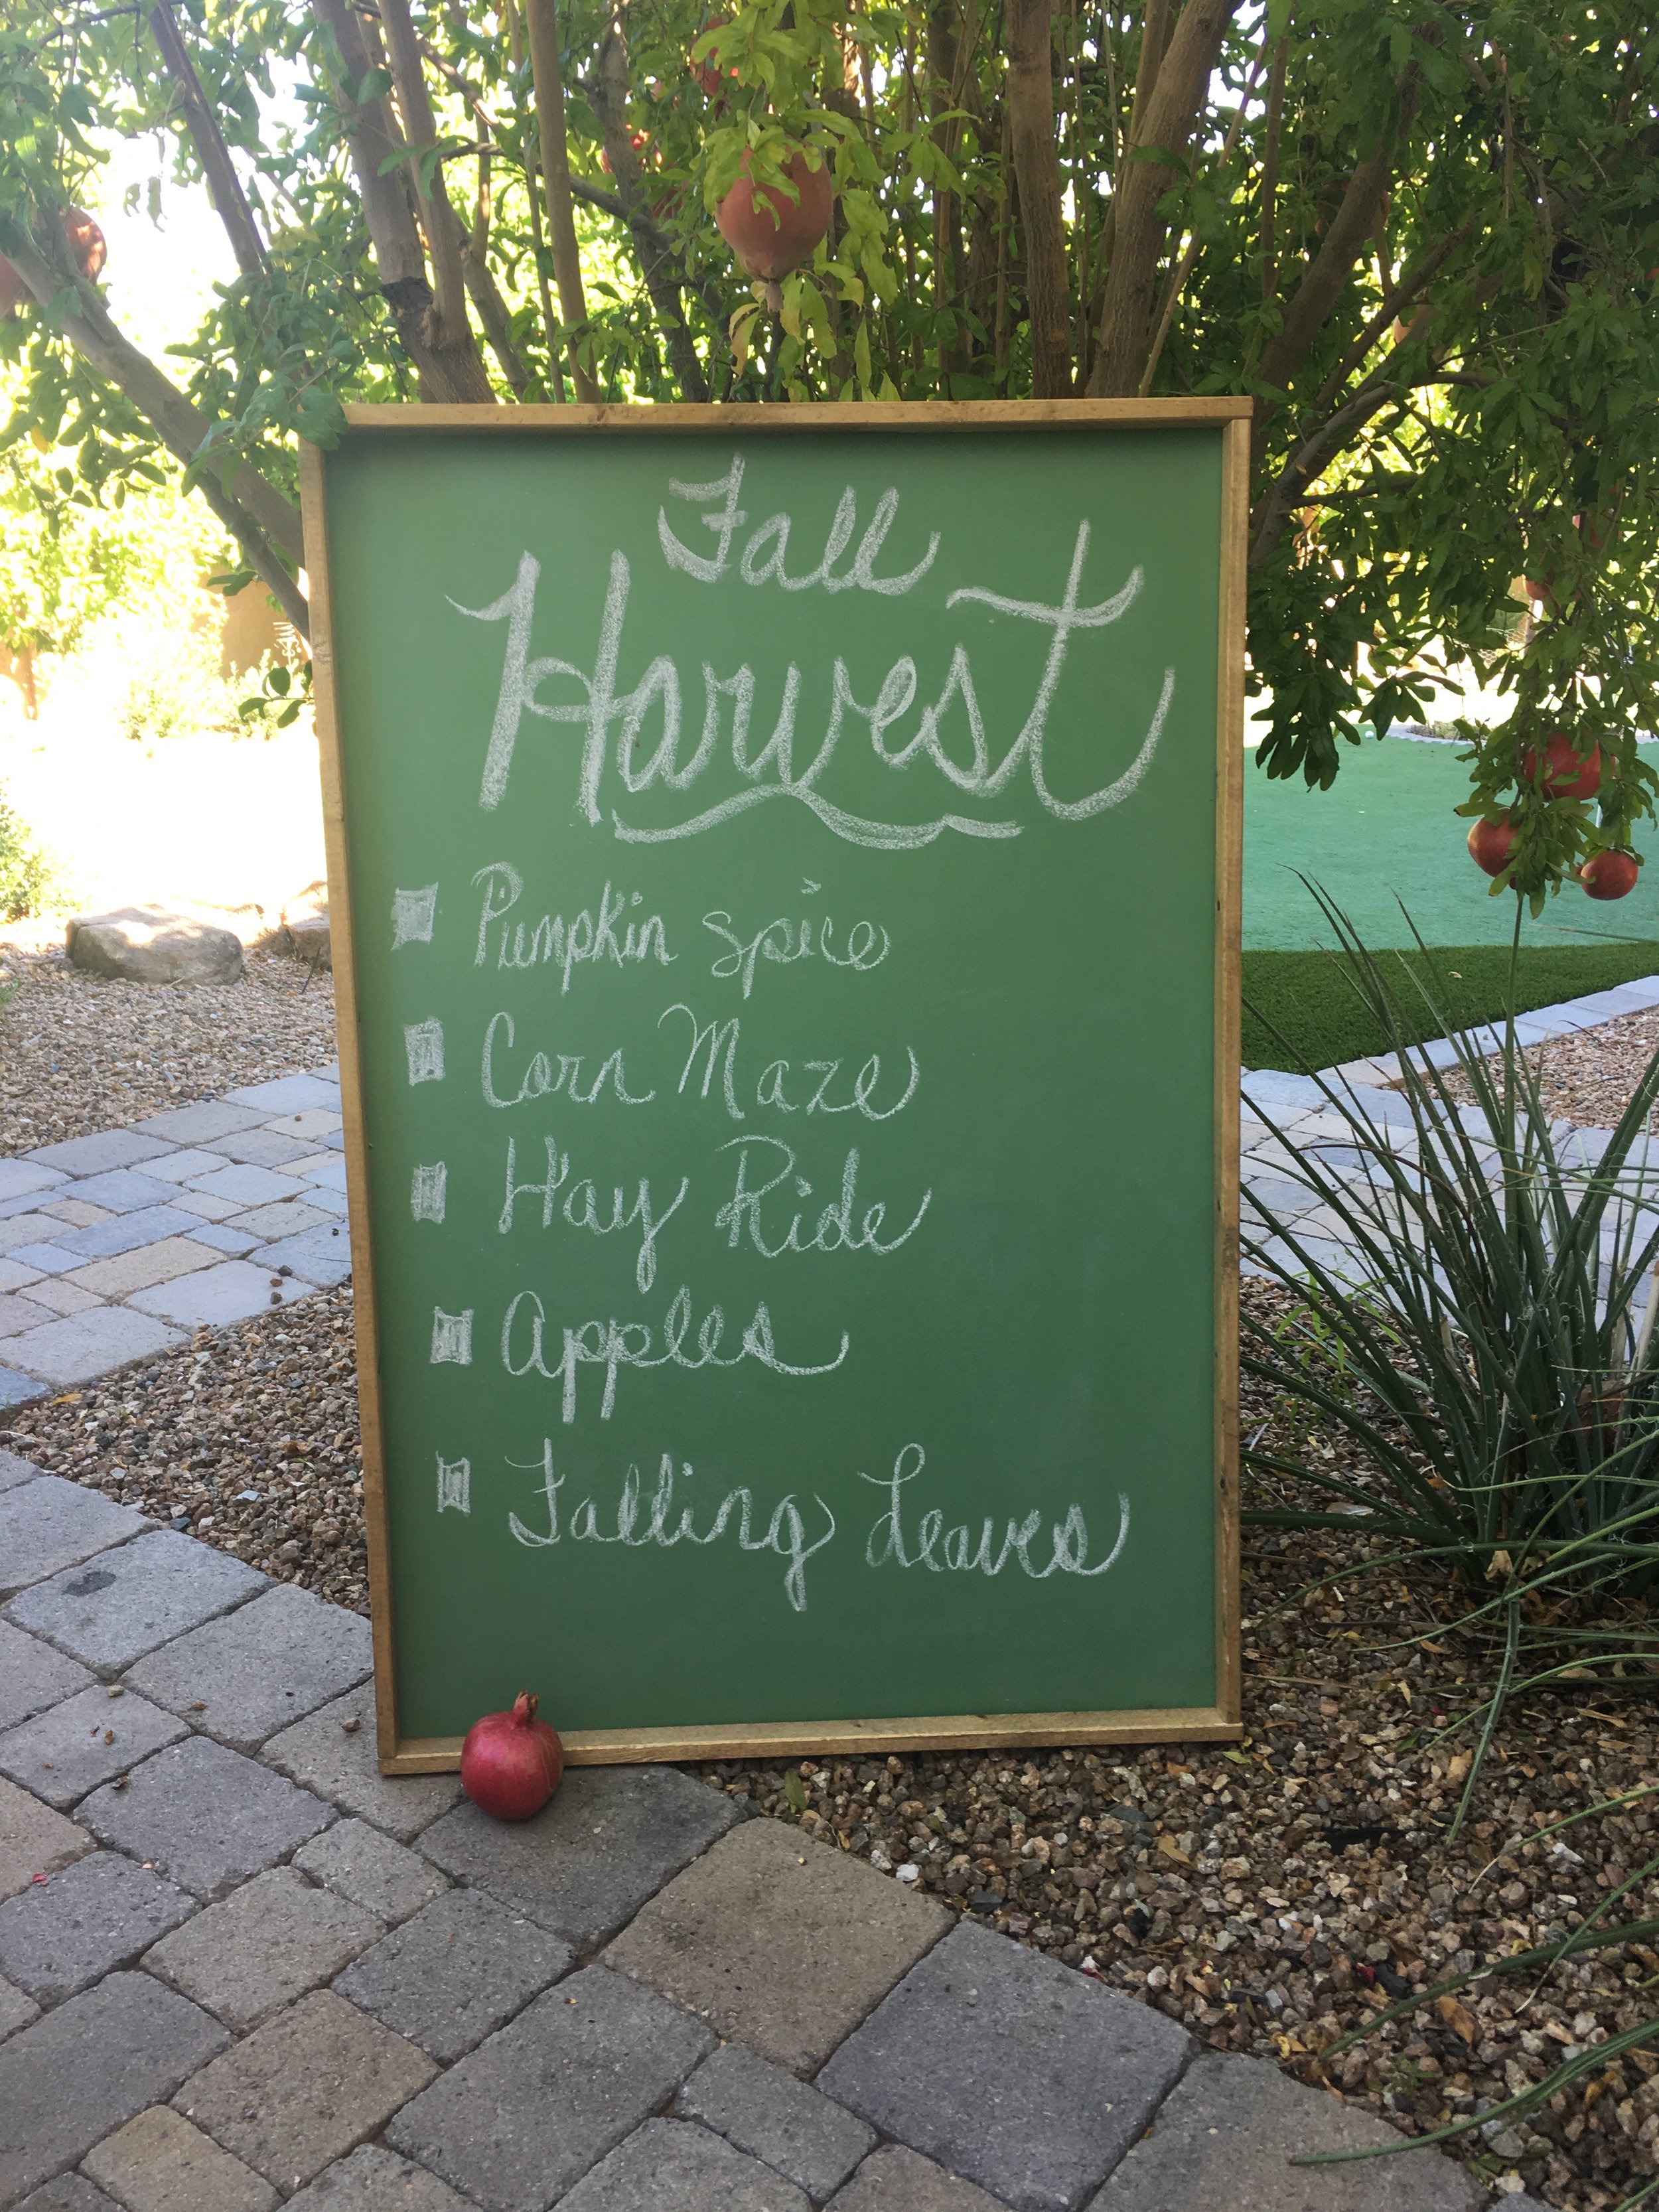 Fall
Harvest
Pumpkin spice
Corn Maze
Hay Ride
Apples
Falling Leaves